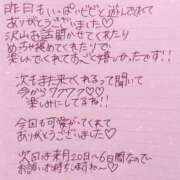 昨日もいっぱいどどと遊んでくれて
ありがとうございました♡
沢山お話聞かせてくれたり
めちゃ褒めてくれたりで
笑いでくれてすごく嬉しかったです!!
次もまた来てくれるって聞いて
今からワクワクで♡
楽しみにしてるね!!
今回も可愛がってくれて
ありがとうございました♡
次回は来月20日〜6日間なので
お誘いお待ちしてますね〜♡